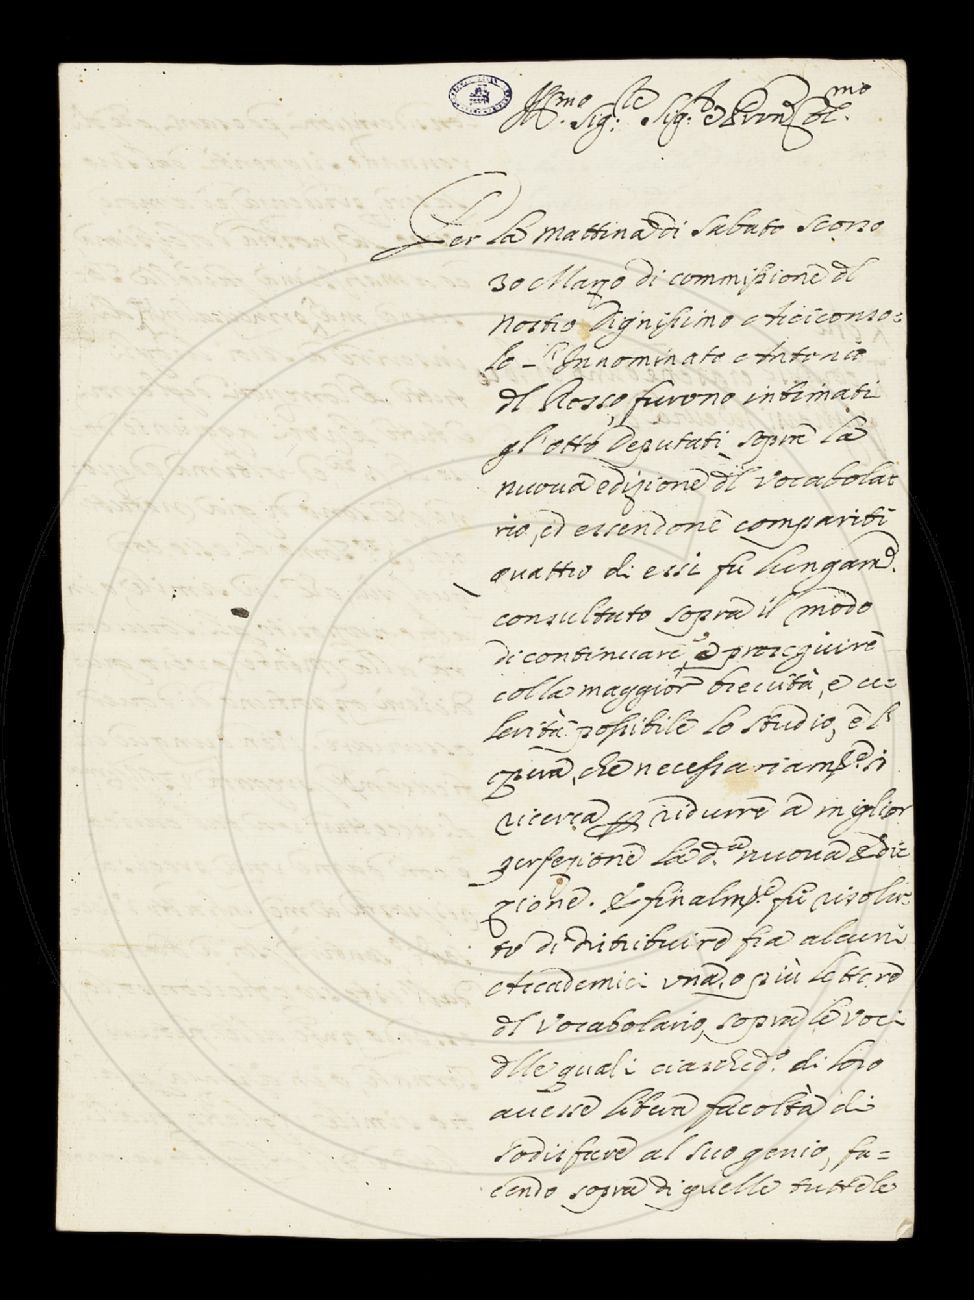 Ill.mo Sig.re Sig.r e Pron Col.mo
Per la mattina di Sabato scorso
30 Marzo di commissione del
nostro dignissimo Arciconso=
lo l'Innominato Antonio
del Rosso, furono intimati
gl'otto Deputati sopra la
nuova edizione del Vocabola=
rio, ed essendone compariti
quattro di essi fu lungam.e
consultato sopra il modo
di continuare, e proseguire
colla maggior brevità, e ce=
lerità possibile lo studio, e l'
opera, che necessariam.te si
ricerca per ridurre a miglior
perfezione la d.a nuova Edi=
zione. E finalm.te fu risolu=
to di distribuire fra alcuni
Accademici una, o più lettere
del Vocabolario, sopra le voci
delle quali ciasched.o di loro
avesse libera facoltà di
sodisfare al suo genio, fa=
cendo sopra di quelle tutte le